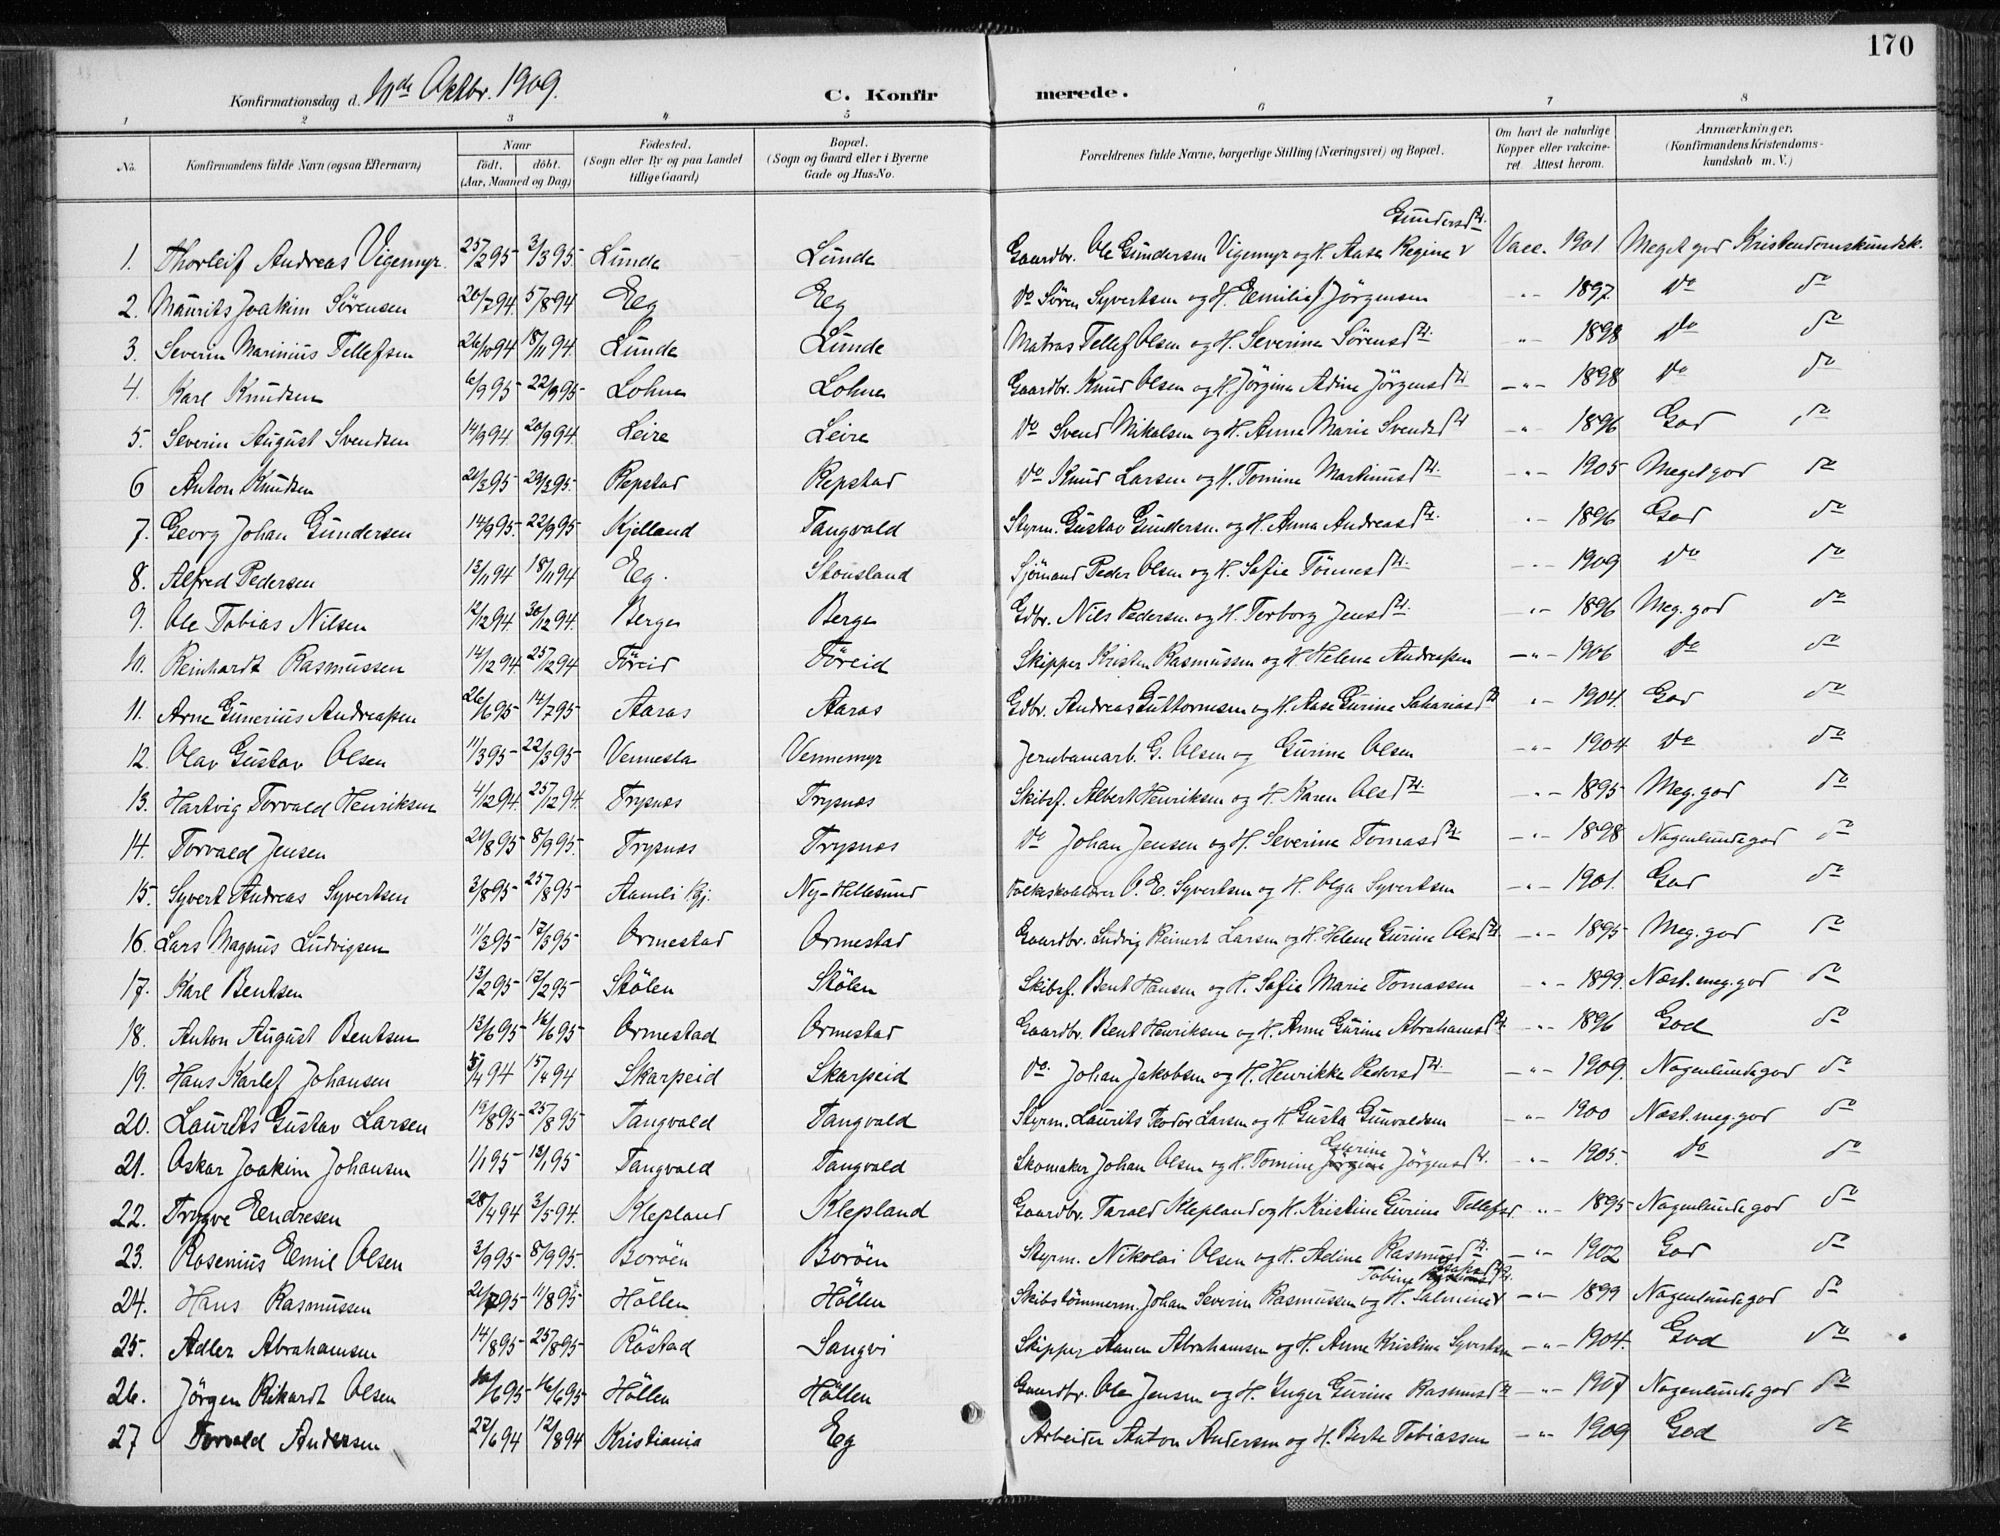 170
Konfirmationsdag d. Oktbr. 1909.
C. Konfirmerede.
1 2 3 4 5 6 7 8
No. Konfirmandens fulde Navn (ogsaa Efternavn) Naar født, døbt. (Aar, Maaned og Dag) Fødested. (Sogn eller By og paa Landet tillige Gaard) Bopæl. (Sogn og Gaard eller i Byerne Gade og Hus-No. Forældrenes fulde Navne, borgerlige Stilling (Næringsvei) og Bopæl. Om havt de naturlige Kopper eller vakcineret. Attest herom. Anmærkninger. (Konfirmandens Kristendomskundskab m. V.)
1. Thorleif Andreas Vigemyr. 25/2 95 3/3 95 Lunde Lunde Gaardbr. Ole Gundersen Vigemyr og H. Aase Regine Gundersdtr. Vacc. 1901 Meget god Kristendomskundsk.
2. Maurits Joakim Sørensen 20/7 94 5/8 94 Eeg Eeg Do Søren Syvertsen og H. Emilie Jørgensen -"- 1897 Do do
3. Severin Marinius Tellefsen 26/10 94 18/11 94. Lunde Lunde Matros Tellef Olsen og H. Severine Sørensdtr. -"- 1898 Do do
4. Karl Knudsen 6/9 95 22/9 95 Lohne Lohne Gaardbr. Knud Olsen og H. Jørgine Adine Jørgensdtr -"- 1898 Do do
5. Severin August Svendsen 14/9 94 20/9 94. Leire Leire Do Svend Nikolsen og H. Anne Marie Svendsdtr -"- 1896 God do
6 Anton Knudsen 21/3 95 29/3 95. Repstad Repstad Do Knud Larsen og H. Tomine Martinusdtr. -"- 1905 Meget god do
7. Georg Johan Gundersen 14/9 95 22/9 95 Kjelland Tangvald Styrm. Gustav Gundersen og H. Anna Andreasdtr. -"- 1896 God do
8. Alfred Pedersen 13/11 94 18/11 94 Eg. Stousland Sjømand Peder Olsen og H. Sofie Tønnesdtr. -"- 1909 Do do
9. Ole Tobias Nilsen 12/12 94. 30/12 94. Berge Berge Gdbr. Nils Pedersen og H. Torborg Jensdtr. -"- 1896 Meg. god do
10. Reinhardt Rasmussen 14/12 94. 25/12 94 Føreid Føreid Skipper Kristen Rasmussen og H. Helene Andreassen -"- 1906 Do do
11. Arne Gunerius Andreassen 26/6 95 14/7 95 Aaras Aaras Gdbr. Andreas Guttormsen og H. Aase Gurine Sakariasdtr -"- 1904. God do
12. Olav Gustav Olsen 11/3 95 22/3 95 Vennesla Vennemyr Jernbanearb. G. Olsen og Gurine Olsen -"- 1904 Do do
13. Hartvig Torvald Henriksen 4/12 94. 25/12 94. Trysnes Trysnes Skibsf. Albert Henriksen og H. Karen Olsdtr. -"- 1895 Meg. god do
14. Torvald Jensen 21/8 95 8/9 95. Trysnes Trysnes Do Johan Jensen og H. Severine Tomasdtr. -"- 1898 Nogenlunde god do
15. Syvert Andreas Syvertsen 3/8 95 25/8 95 Aamli Pgj. Ny-Hellesund Folkeskolelærer O. E. Syvertsen og H. Olga Syvertsen -"- 1901. God do
16. Lars Magnus Ludvigsen 11/3 95 17/3 95 Ormestad Ormestad Gaardbr. Ludvig Reinert Larsen og H. Helene Gurine Olsdtr. -"- 1895 Meg. god do
17. Karl Bentsen 13/2 95 17/2 95 Stølen Stølen Skibsf. Bent Hansen og H. Sofie Marie Tomassen -"- 1899. Næst. meg. god do
18. Anton August Bentsen 13/6 95 16/6 95 Ormestad Ormestad Gaardbr. Bent Henriksen og H. Anne Gurine Abrahamsdtr. -"- 1896 God do
19. Hans Karlef Johansen 5/4 94 15/4 94 Skarpeid Skarpeid Do. Johan Jakobsen og H. Henrikke Pedersdtr. -"- 1909. Nogenlunde god do
20. Laurits Gustav Larsen 19/8 95 25/8 95 Tangvald Tangvald Styrm. Laurits Teodor Larsen og H. Gusta Gunvaldsen -"- 1900 Næst. meg. god do
21. Oskar Joakim Johansen 1/1 95 13/1 95 Tangvald Tangvald Skomaker Johan Olsen og H. Tomine Gurine Jørgensdtr. -"- 1905. Do do
22. Trygve Eendresen 28/4 94 3/5 94. Klepland Klepland Gaardbr. Tarald Klepland og H. Kristine Gurine Tellefsd. -"- 1895 Nogenlunde god do
23. Rosenius Eemil Olsen 3/9 95 8/9 95. Borøen Borøen Styrm. Nikolai Olsen og H. Adine Rasmusdtr. -"- 1902 God do
24. Hans Rasmussen 21/7 95 11/8 95 Høllen Høllen Skibstømmerm. Johan Severin Rasmussen og H. Salmine Tobine -"- 1899 Nogenlunde god do
25. Adler Abrahamsen 14/8 95 25/8 95 Røstad Langvi Skipper Aanen Abrahamsen og H. Anne Kristine Syvertsen -"- 1904. God do
26. Jørgen Rikardt Olsen 10/6 95 16/6 95 Høllen Høllen Gaardbr. Ole Jensen og H. Inger Gurine Rasmusdtr -"- 1907 Nogenlunde god do
27 Torvald Andersen 22/6 94 12/8 94 Kristiania Eg Arbeider Anton Andersen og H. Berte Tobiassen -"- 1909 God do